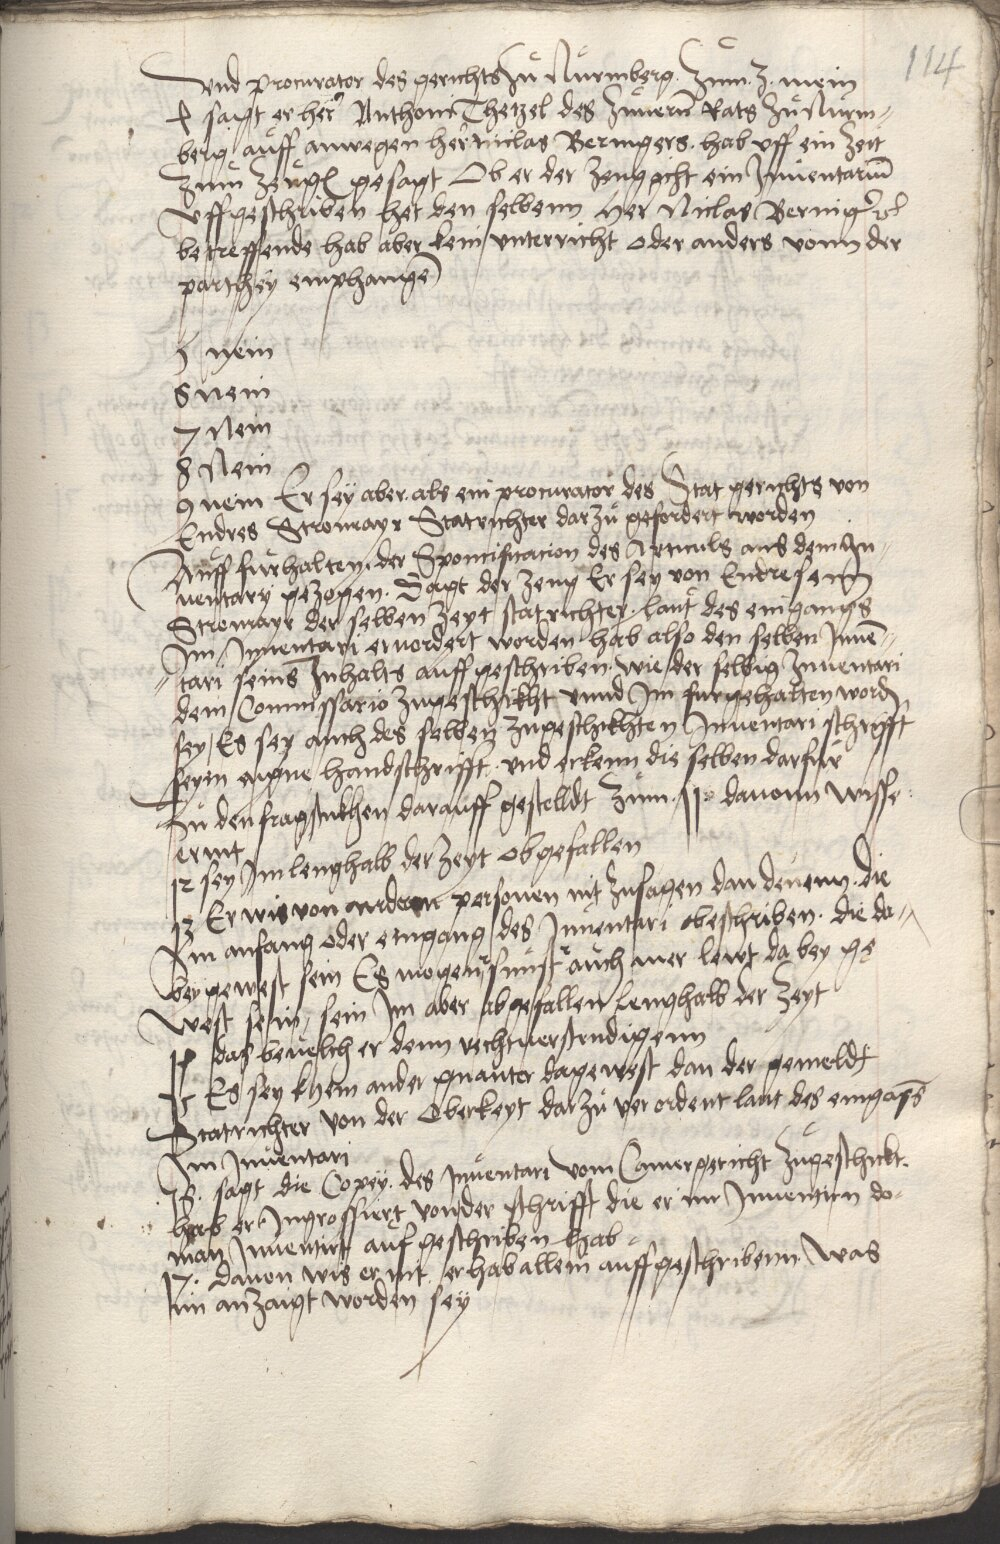 114
Und procurator des gerichts zu Nurmberg. Zum. 3. nein
4 sagt er her Anthoni Thetzel des Innern Rats zu Nurm-
berg auff anwegen her Niclas Beringers. hab uff ein Zeit
Zum Zeugen gesagt Ob er der Zeug nicht ein Inventarium
uffgeschriben het den selbenn Her Niclas Beringer
betreffende hab aber kein unterricht oder anders vonn der
parthey emphangen
5 nein
6 Nein
7 Nein
8 Nein
9 nein Er sey aber. als ein procurator des Stat gerichts von
Endres Stromayr Statrichter darzu gefordert worden
Auff furhalten. der Specificacion des Articuls aus dem In-
ventary gezogen. Sagt der Zeug Er sey von Endresenn
Stromayr der selben Zeyt statrichter. laut des eingangs
Im Inventari ervordert worden hab also den selben Inven-
tari seins Inhalts auffgeschriben. wie der selbig Inventari
dem Commissario zugeschikht unnd Im furgehalten word
sey / Es sey auch des selben zugeschikhten Inventari schrifft
seyn eigne handschrifft. und erkenn die selben darfur
Zu den fragstukhen darauff gestelldt Zum. 11 davonn wisse
er nit
12 sey Im lenghalb der Zeyt abgefallen
13 Er wis von andern personen nit zusagen dan denenn. die
Im anfang oder eingang des Inventari beschriben. die da-
bey gewest sein Es mogen sunst auch mer lewt dabey ge
west sein, sein Im aber abgefallen lenghalb der Zeyt
14 das bevelch er denn rechtverstendigenn
15 Es sey khein ander da gewest dan der gemeldt
Statrichter von der Oberkeyt darzu verordent laut des eingangs
Im Inventari
16. sagt die Copey. des Inventari vom Camergericht zugeschickt.
hab er Ingrossiert vonder schrifft die er im Inventirn do-
man Inventirt auf geschriben hab
17. davon wis er nit. er hab allein auffgeschribenn was
im anzaigt worden sey